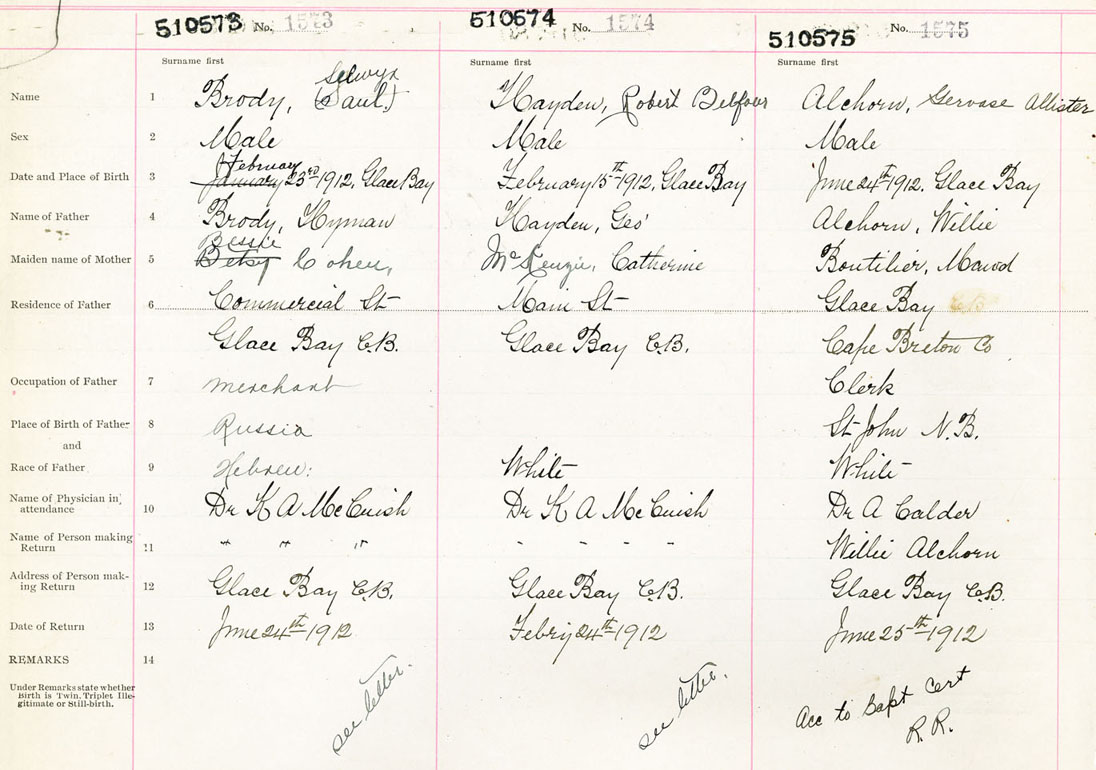 510573 No. 1573 510574 No. 1574 510575 No. 1575
Surname first Surname first Surname first
Selwyn
Name 1 Brody, (Saul.) Hayden, Robert Belfour Alchorn, Gervase Allister
Sex 2 Male Male Male
February
Date and Place of Birth 3 January 23rd 1912, Glace Bay February 15th 1912, Glace Bay June 24th 1912. Glace Bay
Name of Father 4 Brody, Hyman Hayden, Geo' Alchorn, Willie
Bessie
Maiden name of Mother 5 Betsy Cohen, McKenzie, Catherine Boutilier, Mawd
Residence of Father 6 Commercial St Main St Glace Bay
Glace Bay C.B. Glace Bay C.B. Cape Breton Co
Occupation of Father 7 merchant Clerk
Place of Birth of Father 8 Russia St John N.B.
and
Race of Father 9 Hebrew: White White
Name of Physician in attendance 10 Dr K A McCuish Dr K A McCuish Dr A Calder
Name of Person making Return 11 " " " " " " " Willie Alchorn
Address of Person mak-ing Return 12 Glace Bay C.B. Glace Bay C.B. Glace Bay C.B.
Date of Return 13 June 24th 1912 Febry 24th 1912 June 25th 1912
REMARKS 14
Under Remarks state whether
Birth is Twin, Triplet Ille-
gitimate or Still-birth.
see letter. see letter. Acc to Bapt Cert
R.R.